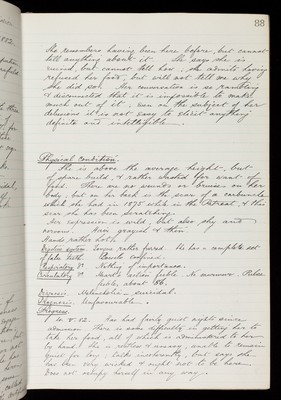 88
She remembers having been here before, but cannot
tell anything about it. She says she is
ruined, but cannot tell how, she admits having
refused her food, but will not tell me why
she did so. Her conversation is so rambling
& disconnected that it is impossible to make
much out of it; even on the subject of her
delusions it is not easy to elicit anything
definite and intelligible.
Physical Condition.
She is above the average height, but
of spare build, & rather wasted for want of
food. There are no wounds or bruises on her
body but on her back is the scar of a carbuncle
which she had in 1875 while in the Retreat, & this
scar she has been scratching.
Her expression is wild, but also shy and
Hair grayish & thin
Hands rather cold.
Digestive system. Tongue rather furred. Has a complete set
of false teeth. Bowels confined.
Respiratory Do. Nothing of importance.
Circulatory Do. Heart's action feeble. No murmur. Pulse
feeble, about 86.
Diagnosis. Melancholia — suicidal.
Prognosis. Unfavourable.
Progress.
Has had fairly quiet nights since
admission. There is some difficulty in getting her to
take her food, all of which is administered to her
by hand. She is restless & uneasy, unable to remain
quiet for long; talks incoherently, but says she
has been very wicked & ought not to be here.
Does not occupy herself in any way.